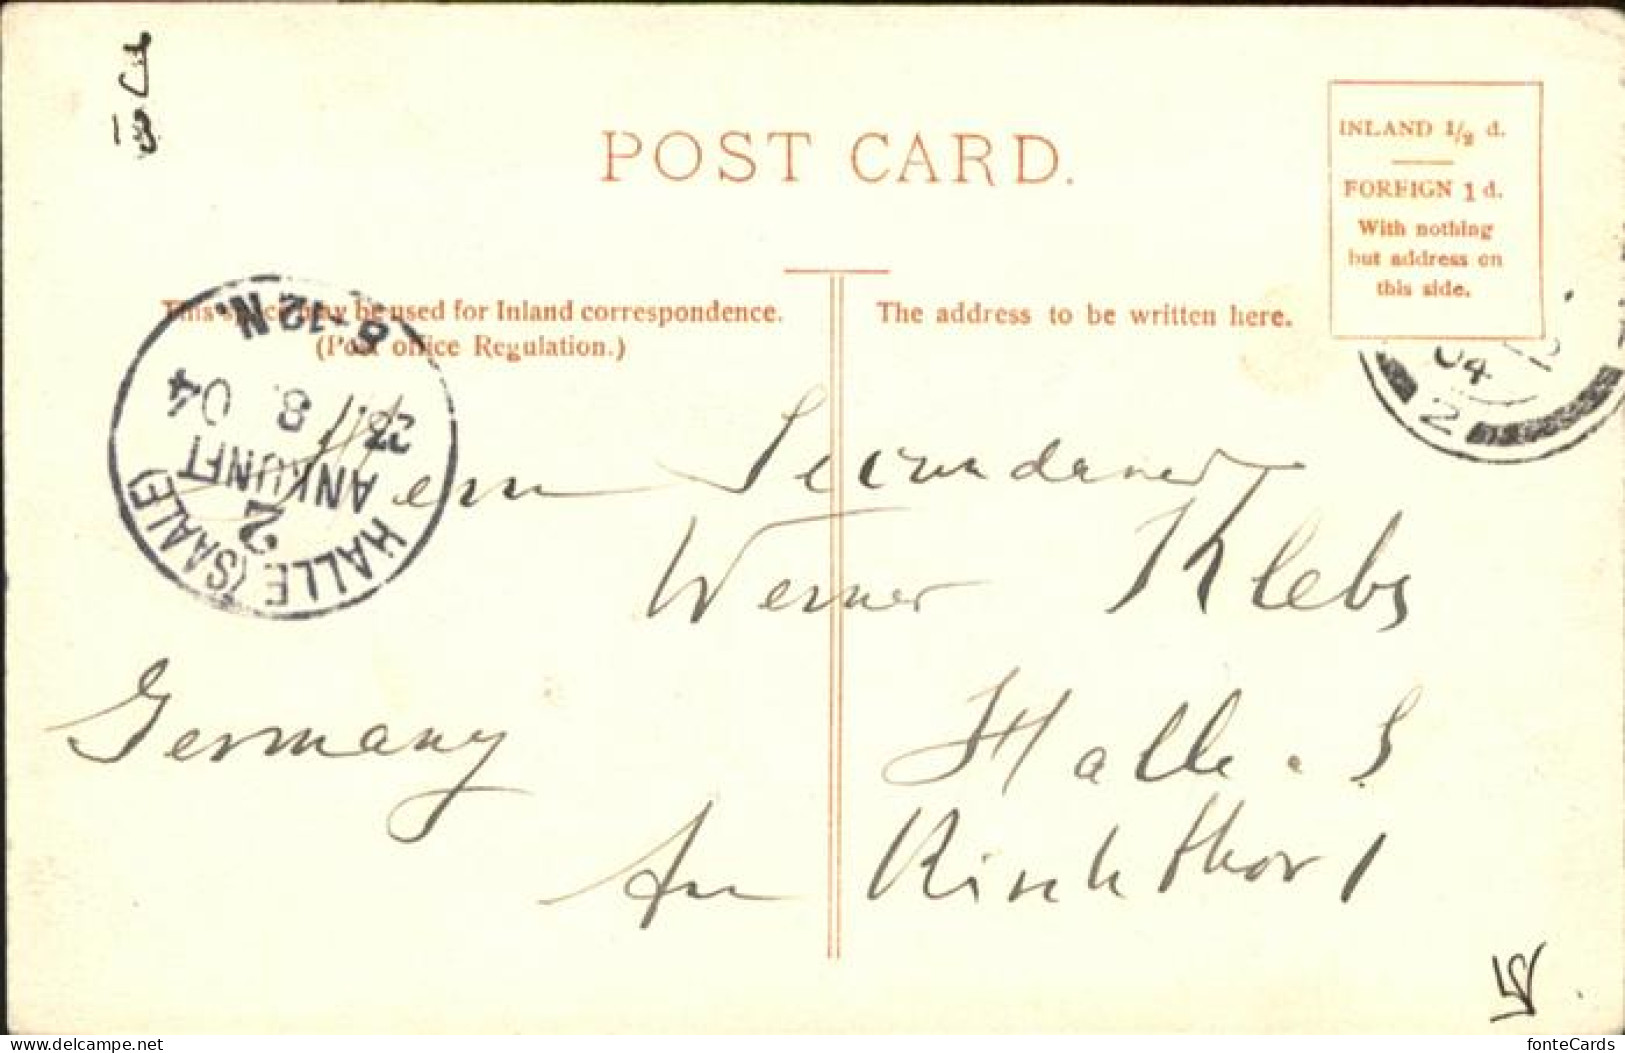 POST CARD.
INLAND 1/2 d.
FOREIGN 1 d.
With nothing
but address on
this side.
This space may be used for Inland correspondence.
(Post office Regulation.)
The address to be written here.
8-12 N.
23. 8. 04
ANKUNFT
2
HALLE (SAALE)
04
2
Herrn Secundaner
Werner Klebs
Germany
Halle a. S
Am Kirchthor 1
fonteCards
www.delcampe.net